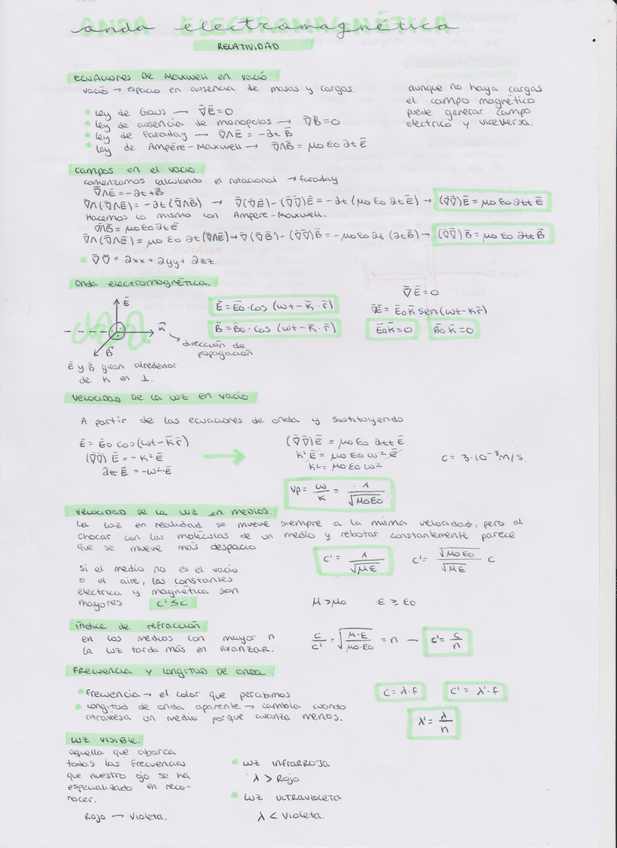 onda electromagnética
RELATIVIDAD
ECUACIONES DE MAXWELL EN VACÍO
vacío → espacio en ausencia de masas y cargas.
Ley de Gauss → ∇⃗E⃗=0
Ley de ausencia de monopolos → ∇⃗B⃗=0
Ley de Faraday → ∇⃗∧E⃗ = -∂t B⃗
Ley de Ampère-Maxwell → ∇⃗∧B⃗ = μ0 ε0 ∂t E⃗
aunque no haya cargas
el campo magnético
puede generar campo
eléctrico y viceversa.
CAMPOS EN EL VACÍO
comenzamos calculando el rotacional → Faraday
∇⃗∧E⃗ = -∂t B⃗
∇⃗∧(∇⃗∧E⃗) = -∂t (∇⃗∧B⃗) → ∇⃗(∇⃗E⃗) - (∇⃗∇⃗)E⃗ = -∂t (μ0 ε0 ∂t E⃗) → (∇⃗∇⃗)E⃗ = μ0 ε0 ∂tt E⃗
Hacemos lo mismo con Ampère-Maxwell.
∇⃗∧B⃗ = μ0 ε0 ∂t E⃗
∇⃗∧(∇⃗∧B⃗) = μ0 ε0 ∂t (∇⃗∧E⃗) → ∇⃗(∇⃗B⃗) - (∇⃗∇⃗)B⃗ = -μ0 ε0 ∂t (∂t B⃗) → (∇⃗∇⃗)B⃗ = μ0 ε0 ∂tt B⃗
∇⃗∇⃗ = ∂xx + ∂yy + ∂zz.
Onda electromagnética.
E⃗
K⃗
B⃗
dirección de
propagación
E⃗ y B⃗ giran alrededor
de K en ⊥.
E⃗ = E⃗0 · cos (ωt - K⃗ · r⃗)
B⃗ = B⃗0 · cos (ωt - K⃗ · r⃗)
∇⃗E⃗ = 0
∇⃗E⃗ = E⃗0 K⃗ sen (ωt - K⃗r⃗)
E⃗0 K⃗ = 0
B⃗0 K⃗ = 0
VELOCIDAD DE LA LUZ EN VACÍO
A partir de las ecuaciones de onda y sustituyendo
E⃗ = E⃗0 cos (ωt - K⃗r⃗)
(∇⃗∇⃗) E⃗ = -K² E⃗
∂tt E⃗ = -ω² E⃗
(∇⃗∇⃗) E⃗ = μ0 ε0 ∂tt E⃗
K² E⃗ = μ0 ε0 ω² E⃗
K² = μ0 ε0 ω²
C = 3·10⁻⁸ m/s.
Vp = ω/K = 1/√μ0 ε0
VELOCIDAD DE LA LUZ EN MEDIOS.
La luz en realidad se mueve siempre a la misma velocidad, pero al
chocar con las moléculas de un medio y rebotar constantemente parece
que se mueve más despacio
C' = 1/√μ ε
C' = √μ0 ε0/√μ ε C
Si el medio no es el vacío
o el aire, las constantes
eléctrica y magnética son
mayores C' ≤ C
μ > μ0 ε ≥ ε0
Índice de refracción
en los medios con mayor n
la luz tarda más en avanzar.
C/C' = √μ·ε/μ0·ε0 = n → C' = C/n
FRECUENCIA Y LONGITUD DE ONDA
frecuencia → el color que percibimos
longitud de onda aparente → cambia cuando
atraviesa un medio porque avanza menos.
C = λ·f
C' = λ'·f
λ' = λ/n
LUZ VISIBLE.
aquella que abarca
todas las frecuencias
que nuestro ojo se ha
especializado en reco-
nocer.
Rojo → Violeta.
LUZ INFRARROJA
λ > Rojo
LUZ ULTRAVIOLETA
λ < Violeta.